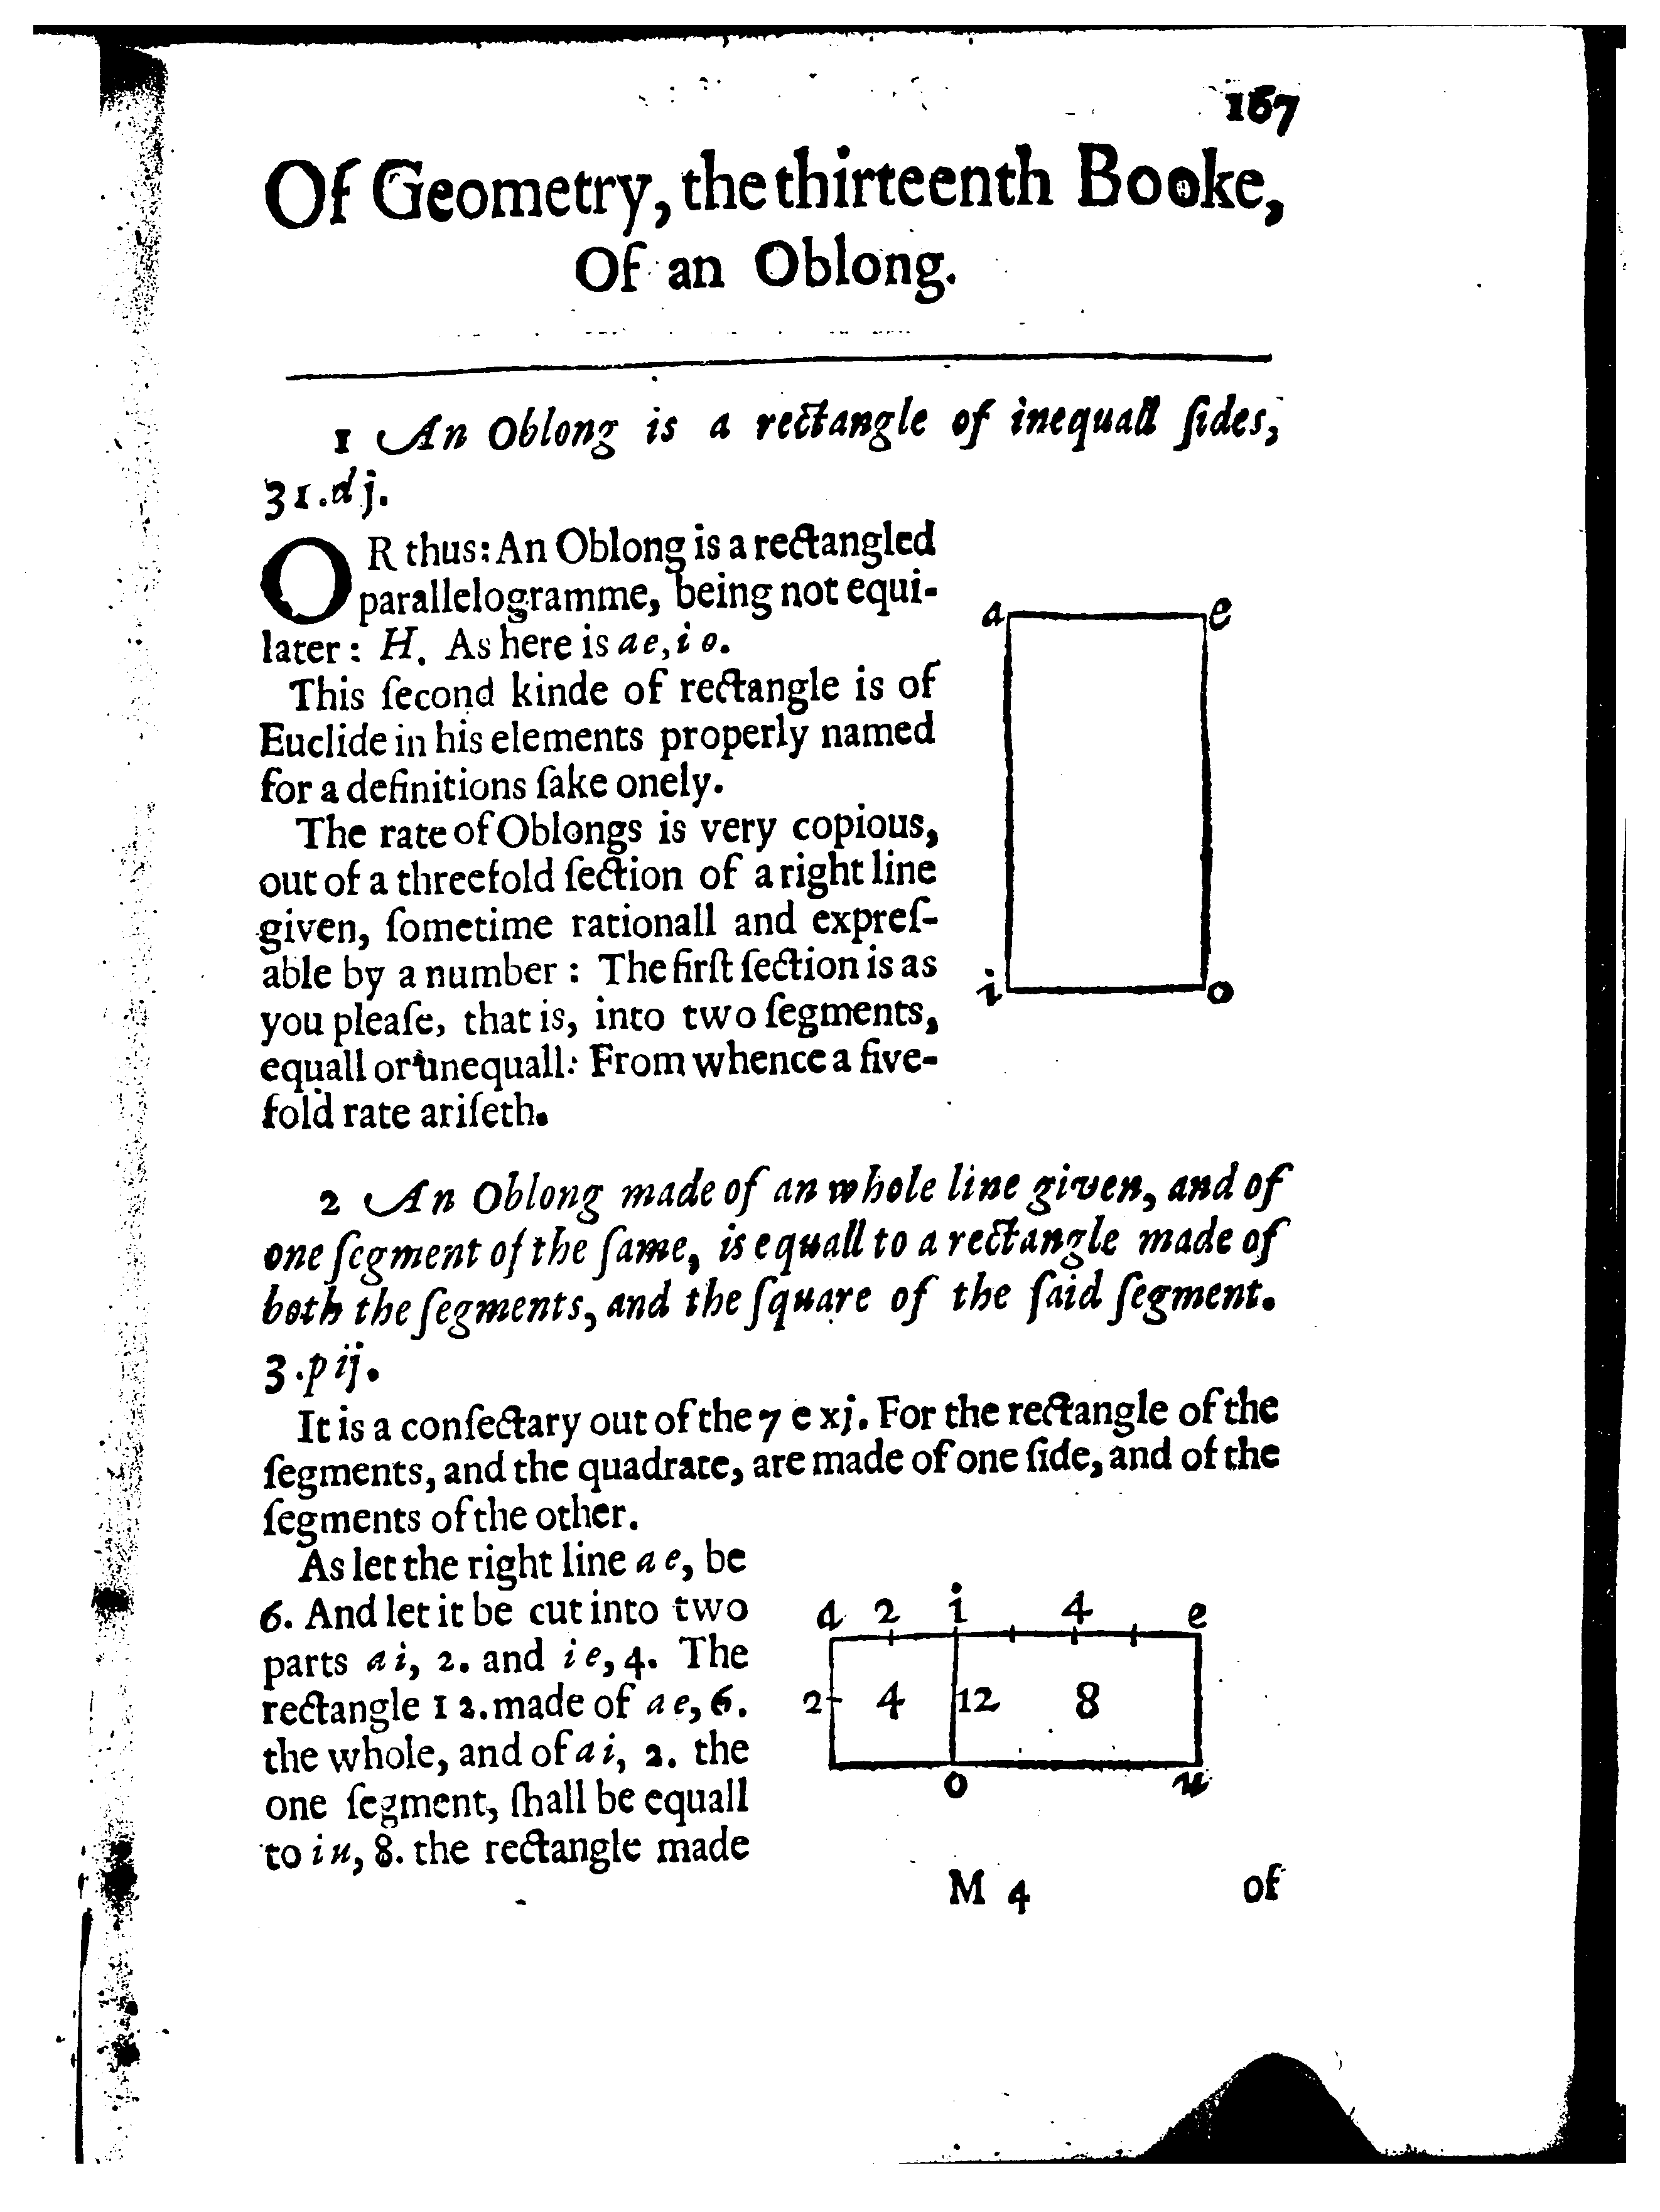 167
Of Geometry, the thirteenth Booke,
Of an Oblong.
1 An Oblong is a rectangle of inequall ſides,
31.dj.
OR thus: An Oblong is a rectangled
parallelogramme, being not equi-
later: H. As here is ae, io.
This ſecond kinde of rectangle is of
Euclide in his elements properly named
for a definitions ſake onely.
The rate of Oblongs is very copious,
out of a threefold ſection of a right line
given, ſometime rationall and expreſ-
able by a number: The firſt ſection is as
you pleaſe, that is, into two ſegments,
equall or unequall: From whence a five-
fold rate ariſeth.
a e
i o
2 An Oblong made of an whole line given, and of
one ſegment of the ſame, is equall to a rectangle made of
both the ſegments, and the ſquare of the ſaid ſegment.
3.p ij.
It is a conſectary out of the 7 e xj. For the rectangle of the
ſegments, and the quadrate, are made of one ſide, and of the
ſegments of the other.
As let the right line ae, be
6. And let it be cut into two
parts ai, 2. and ie, 4. The
rectangle 12. made of ae, 6.
the whole, and of ai, 2. the
one ſegment, ſhall be equall
to iu, 8. the rectangle made
a 2 i 4 e
2 4 12 8
o u
M 4 of